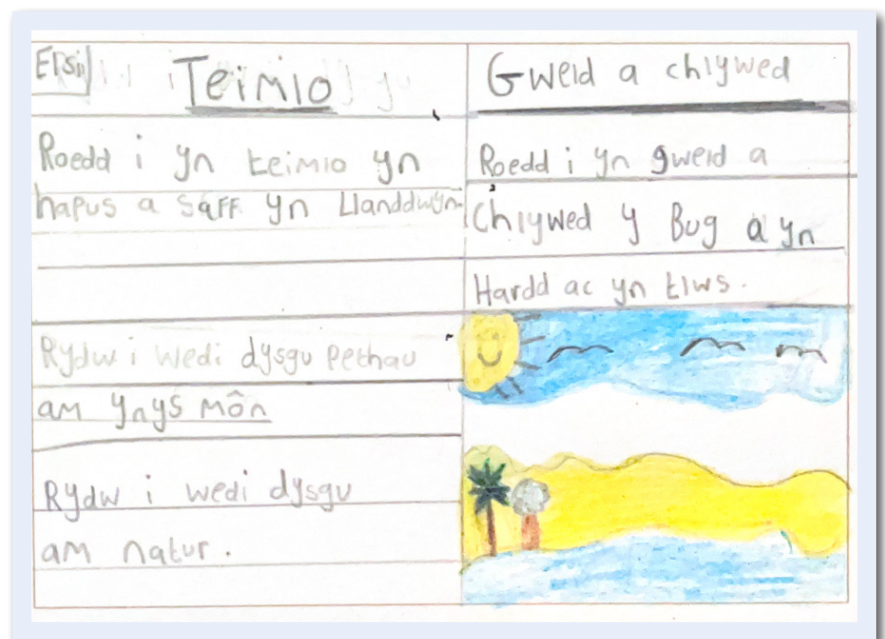 Teimlo
Roedd i yn teimlo yn
hapus a saff yn Llanddwyn.
Rydw i wedi dysgu pethau
am Ynys Môn
Rydw i wedi dysgu
am natur.
Gweld a chlywed
Roedd i yn gweld a
Chlywed y Bug a yn
Hardd ac yn tlws.